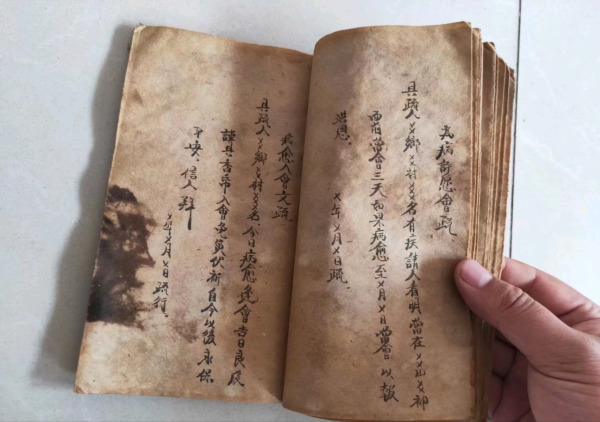 具疏人××鄉×村××名有疾請人看明當在××山×神
西府當會三天如果病愈至×月×日當會以報
洪恩
×年×月×日疏
病愈入會文疏
具疏人×鄉×村××名今日病愈逢會吉日良辰
謹具香帛入會 伏祈自今以後永保
平安 信人拜
×年×月×日疏